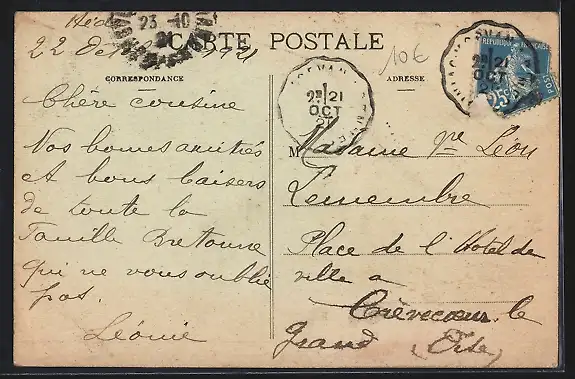 22 Oct 1921
CARTE POSTALE
10€
CORRESPONDANCE
ADRESSE
23 -10
21
OCT
21
21
OCT
REPUBLIQUE FRANÇAISE
25c
Chère cousine
Nos bonnes amitiés
et bons baisers
de toute la
famille Bretonne
qui ne vous oublie
pas.
Léonie
Madame Vve Léon
Lemembre
Place de l'Hotel de
ville a
Crèvecœur le
Grand (Oise)